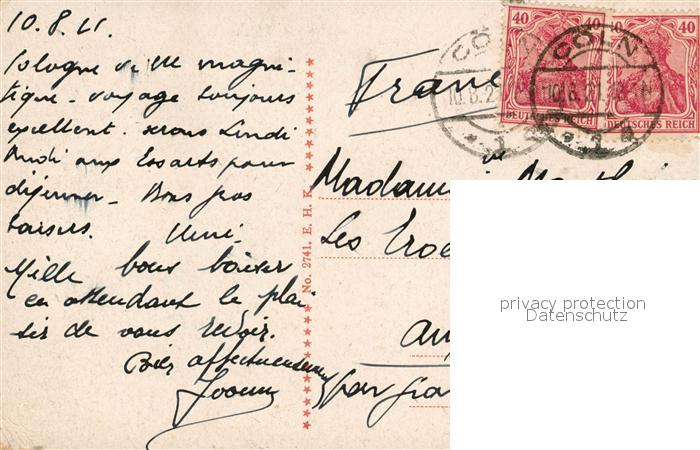 10.8.21.
Cologne ville magni-
fique - voyage toujours
excellent. serons Lundi
Midi aux Essarts pour
déjeuner - Bons gros
baisers.
Mille bons baiser
en attendant le plai
sir de vous revoir.
Bien affectueusement
No. 2741. E. H. K.
France
CÖLN
40 40
DEUTSCHES REICH
40
DEUTSCHES REICH
Madame
Les
par
privacy protection
Datenschutz